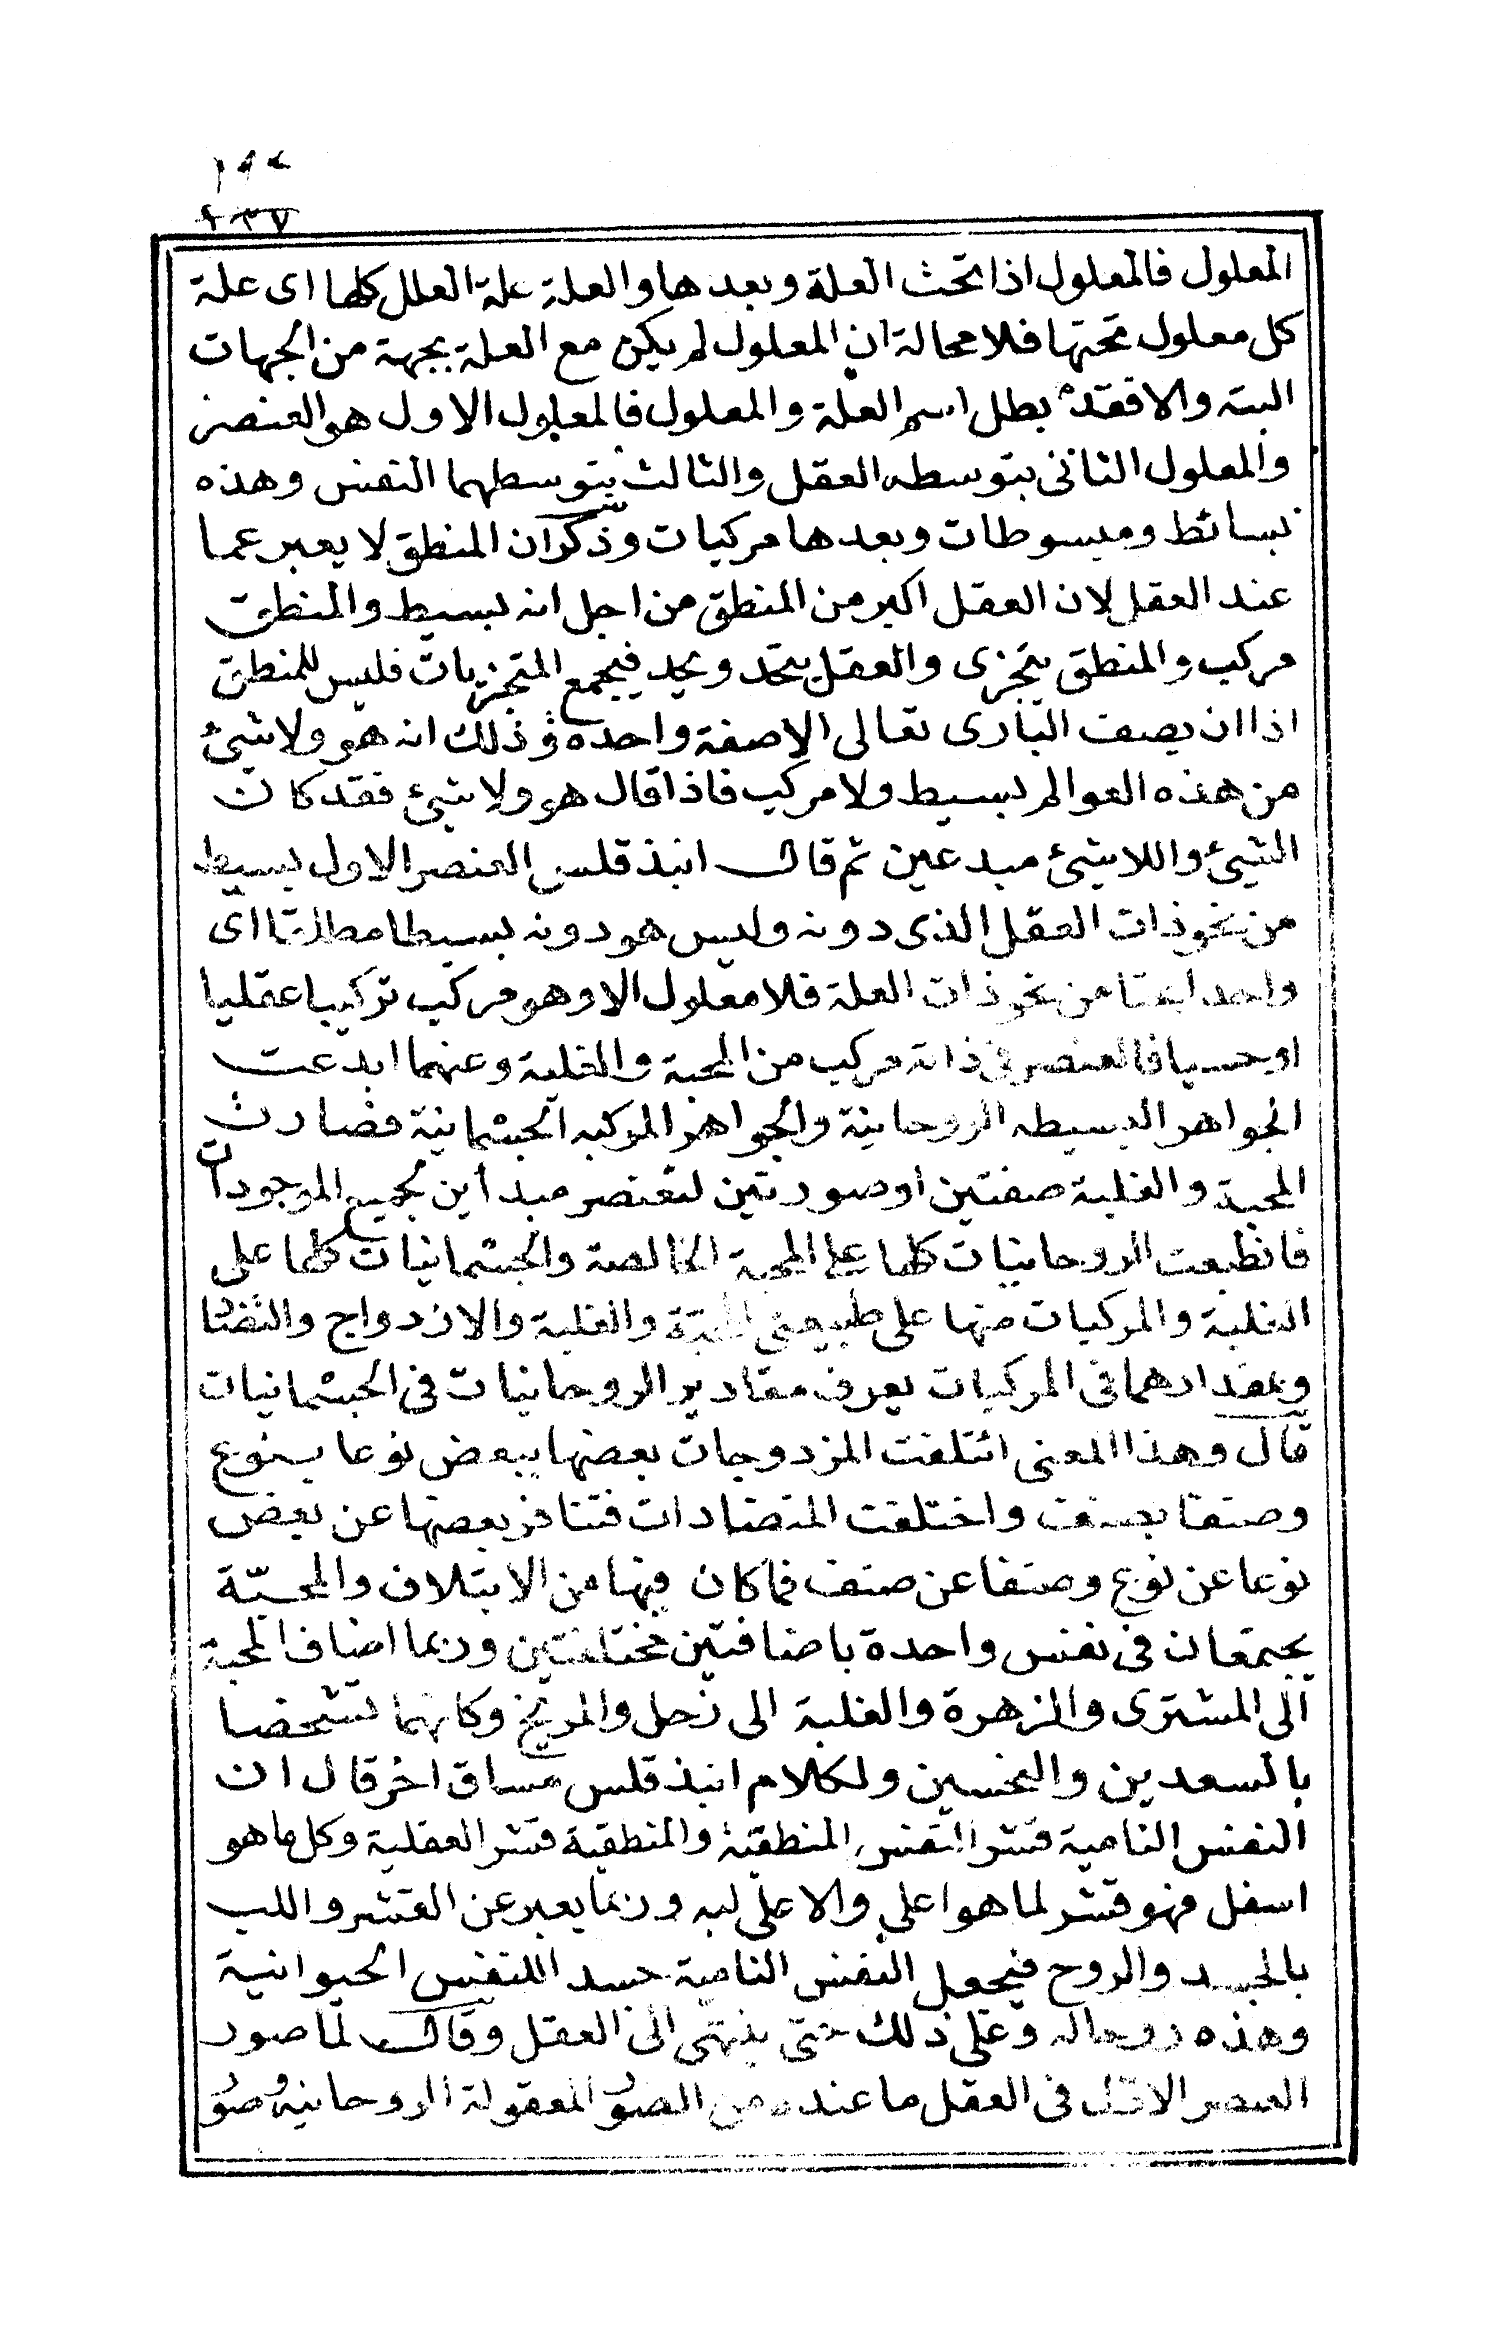 المعلول فالمعلول اذا تحت العلة وبعدها والعلة علة العلل كلها اى علة
كل معلول تحتها فلا محالة ان المعلول لم يكن مع العلة بجهة من الجهات
البته والا فقد بطل اسم العلة والمعلول فالمعلول الاول هو العنصر
والمعلول الثانى بتوسطه العقل والثالث بتوسطهما النفس وهذه
بسائط ومبسوطات وبعدها مركبات وذكر ان المنطق لا يعبر عما
عند العقل لان العقل اكبر من المنطق من اجل انه بسيط والمنطق
مركب والمنطق يتجزى والعقل يتحد ويحد فيجمع المتجزيات فليس للمنطق
اذا ان يصف البارى تعالى الا صفة واحده وذلك انه هو ولا شئ
من هذه العوالم بسيط ولا مركب فاذا قال هو ولا شئ فقد كان
الشئ واللاشئ مبدعين ثم قال انبذقلس العنصر الاول بسيط
من نحو ذات العقل الذى دونه وليس هو دونه بسيطا مطلقا اى
واحدا بحتا من نحو ذات العلة فلا معلول الا وهو مركب تركيبا عقليا
او حسيا فالعنصر فى ذاته مركب من المحبة والغلبة وعنهما ابدعت
الجواهر البسيطه الروحانية والجواهر المركبه الجسمانية فصارت
المحبة والغلبة صفتين او صورتين للعنصر مبدأين لجميع الموجودات
فانطبعت الروحانيات كلها على المحبة الخالصة والجسمانيات كلها على
الغلبة والمركبات منها على طبيعتى المحبة والغلبة والازدواج والتضاد
وبمقدارهما فى المركبات يعرف مقادير الروحانيات فى الجسمانيات
قال وهذا المعنى ائتلفت المزدوجات بعضها ببعض نوعا بنوع
وصنفا بصنف واختلفت المتضادات فتنافر بعضها عن بعض
نوعا عن نوع وصنفا عن صنف فما كان فيها من الايتلاف والمحبّة
يجتمعان فى نفس واحدة باضافتين مختلفتين وربما اضاف المحبة
الى المشترى والزهرة والغلبة الى زحل والمريخ وكانهما تشخصا
بالسعدين والنحسين ولكلام انبذقلس مساق اخر قال ان
النفس النامية قشر النفس المنطقية والمنطقية قشر العقلية وكل ما هو
اسفل فهو قشر لما هو اعلى والاعلى لبه وربما يعبر عن القشر واللب
بالجسد والروح فيجعل النفس النامية جسد اللنفس الحيوانية
وهذه روحاله وعلى ذلك حتى ينتهى الى العقل وقال لما صور
العنصر الاول فى العقل ما عنده من الصور المعقولة الروحانية وصور